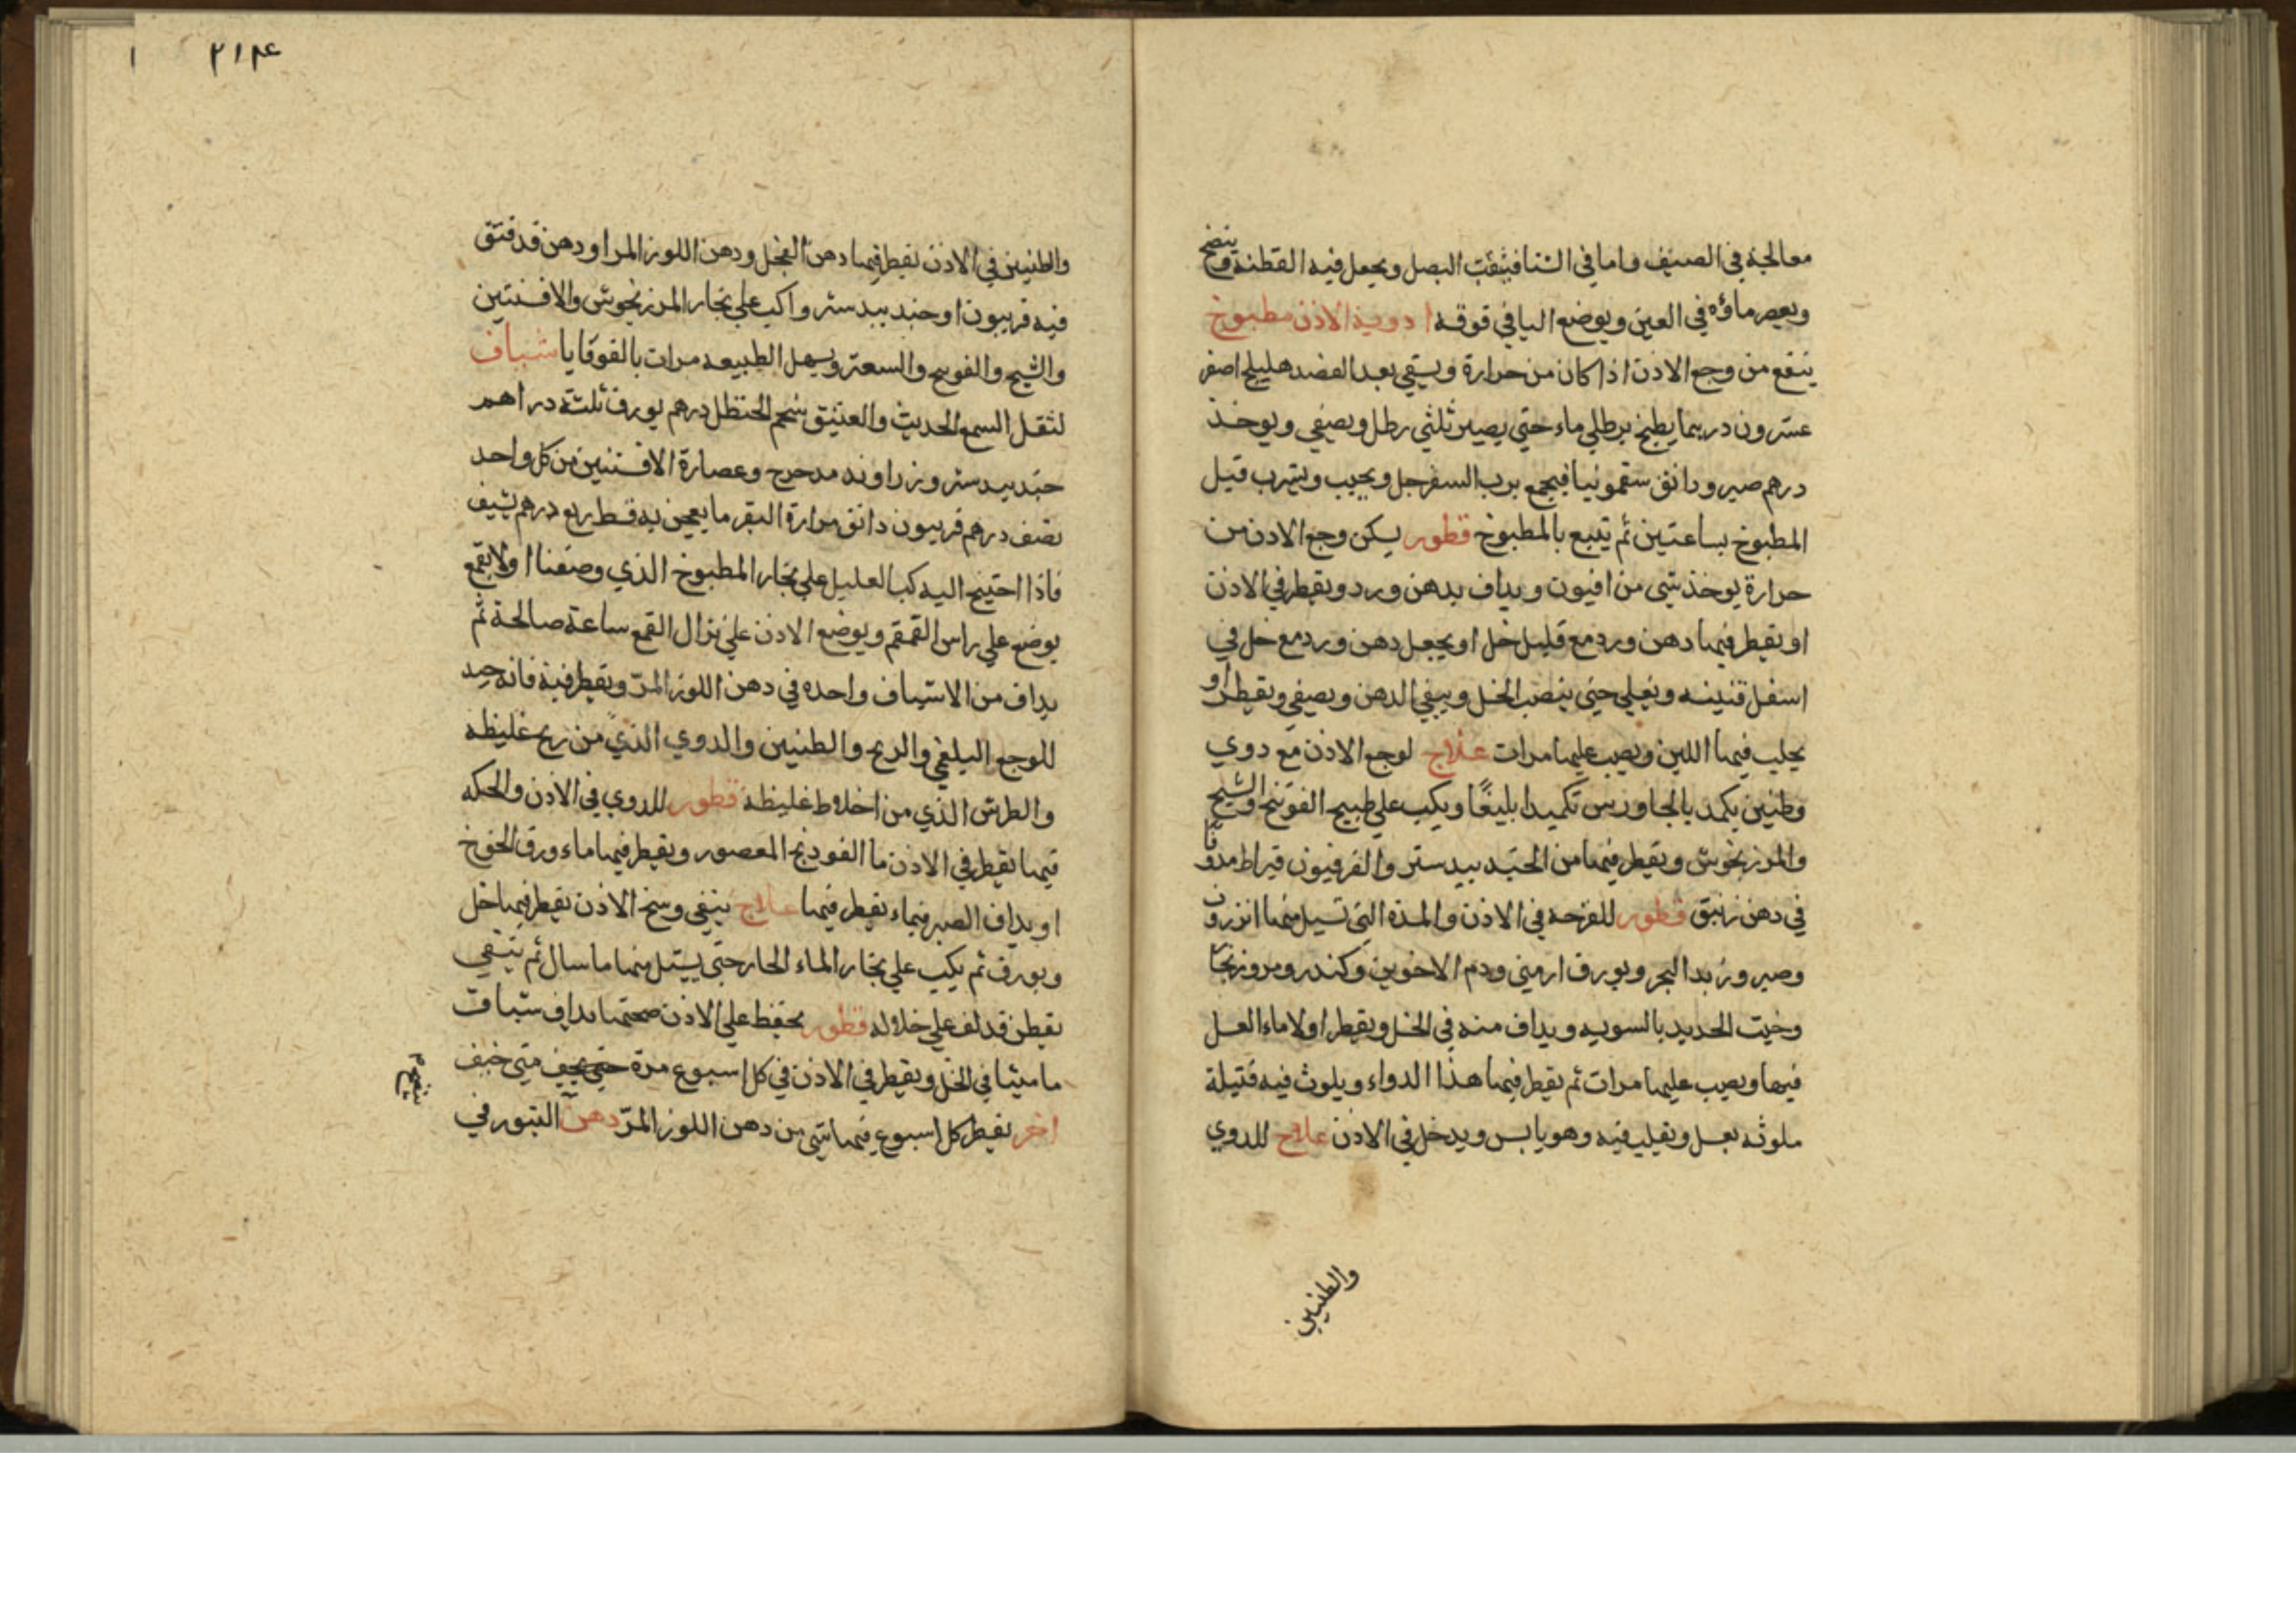 معالجة في الصيف واما في الشتا فيثقب البصل ويجعل فيه القطنة وينضج
ويعصر ماؤه في العين ويوضع اليافي فوقه ادوية الاذن مطبوخ
ينفع من وجع الاذن اذا كان من حرارة ويسقي بعد الفصد هليلج اصفر
عشرون درهما يطبخ برطلي ماء حتي يصير ثلثي رطل ويصفي ويوخذ
درهم صبر ودانق سقمونيا فيجمع برب السفرجل ويحبب ويشرب قبل
المطبوخ بساعتين ثم يتبع بالمطبوخ قطور يسكن وجع الاذن من
حرارة يوخذ شي من افيون ويداف بدهن ورد ويقطر في الاذن
او يقطر فيها دهن ورد مع قليل خل او يجعل دهن ورد مع خل في
اسفل قنينه ويغلي حتي ينصب الخل ويبقي الدهن ويصفي ويقطر او
يحلب فيها اللبن ويصب عليها مرات علاج لوجع الاذن مع دوي
وطنين يكمد بالجاورس تكميدا بليغًا ويكب علي طبيخ الفوتنج والشيح
والمرزنجوش ويقطر فيها من الجندبيدستر والفرفيون قيراط مدوفا
في دهن زنبق قطور للقرحه في الاذن والمدة التي تسيل منها انزروت
وصبر وزبد البحر وبورق ارمني ودم الاخوين وكندر ومر وزنجار
وخبث الحديد بالسويه ويداف منه في الخل ويقطر اولا ماء العسل
فيها ويصب عليها مرات ثم يقطر فيها هذا الدواء ويلوث فيه فتيلة
ملوثه بعسل ويقلب فيه وهو يابس ويدخل في الاذن علاج للدوي
والطنين
٢١٤
والطنين في الاذن يقطر فيها دهن الفجل ودهن اللوز المر او دهن قد فتق
فيه فربيون او جندبيدستر واكب علي بخار المرزنجوش والافسنتين
والشيح والفوتنج والسعتر ويسهل الطبيعه مرات بالقوقايا شياف
لثقل السمع الحديث والعتيق شحم الحنظل درهم بورق ثلثة دراهم
جندبيدستر وزراوند مدحرج وعصارة الافسنتين من كل واحد
نصف درهم فربيون دانق مرارة البقر ما يعجن به قسط ربع درهم يشيف
فاذا احتيج اليه كب العليل علي بخار المطبوخ الذي وصفنا اولا بقمع
يوضع علي راس القمقم ويوضع الاذن علي نزال القمع ساعة صالحة ثم
يداف من الاشياف واحده في دهن اللوز المر ويقطر فيه فانه جيد
للوجع البلغمي والريح والطنين والدوي الذي من ريح غليظه
والطرش الذي من اخلاط غليظه قطور للدوي في الاذن والحكه
فيها يقطر في الاذن ما الفودنج المعصور ويقطر فيها ماء ورق الخوخ
او يداف الصبر بماء يقطر فيها علاج ينقي وسخ الاذن يقطر فيها خل
وبورق ثم يكب علي بخار الماء الحار حتي يسيل منها ما سال ثم يتنقي
بقطن قد لف علي خلاله قطور يحفظ علي الاذن صحتها يداف شياف
ماميثا في الخل ويقطر في الاذن في كل اسبوع مرة متي خيف
اخر يقطر كل اسبوع فيها شي من دهن اللوز المر دهن البثور في